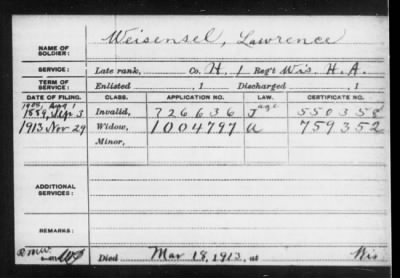 NAME OF SOLDIER: Weisensel, Lawrence
SERVICE: Late rank, Co. H, 1 Reg't Wis. H. A.
TERM OF SERVICE: Enlisted , 1 Discharged , 1
DATE OF FILING. CLASS. APPLICATION NO. LAW. CERTIFICATE NO.
1908, Aug 1
1889, Sep 3 Invalid, 726636 J age 550358
1913 Nov 29 Widow, 1004797 a 759352
Minor,
ADDITIONAL SERVICES:
REMARKS:
Died Mar 18, 1913, at Wis